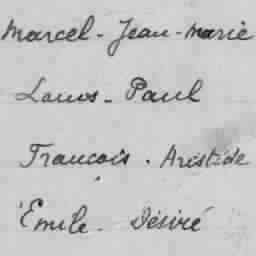 Marcel - Jean - Marie
Louis - Paul
François . Aristide
Émile - Désiré